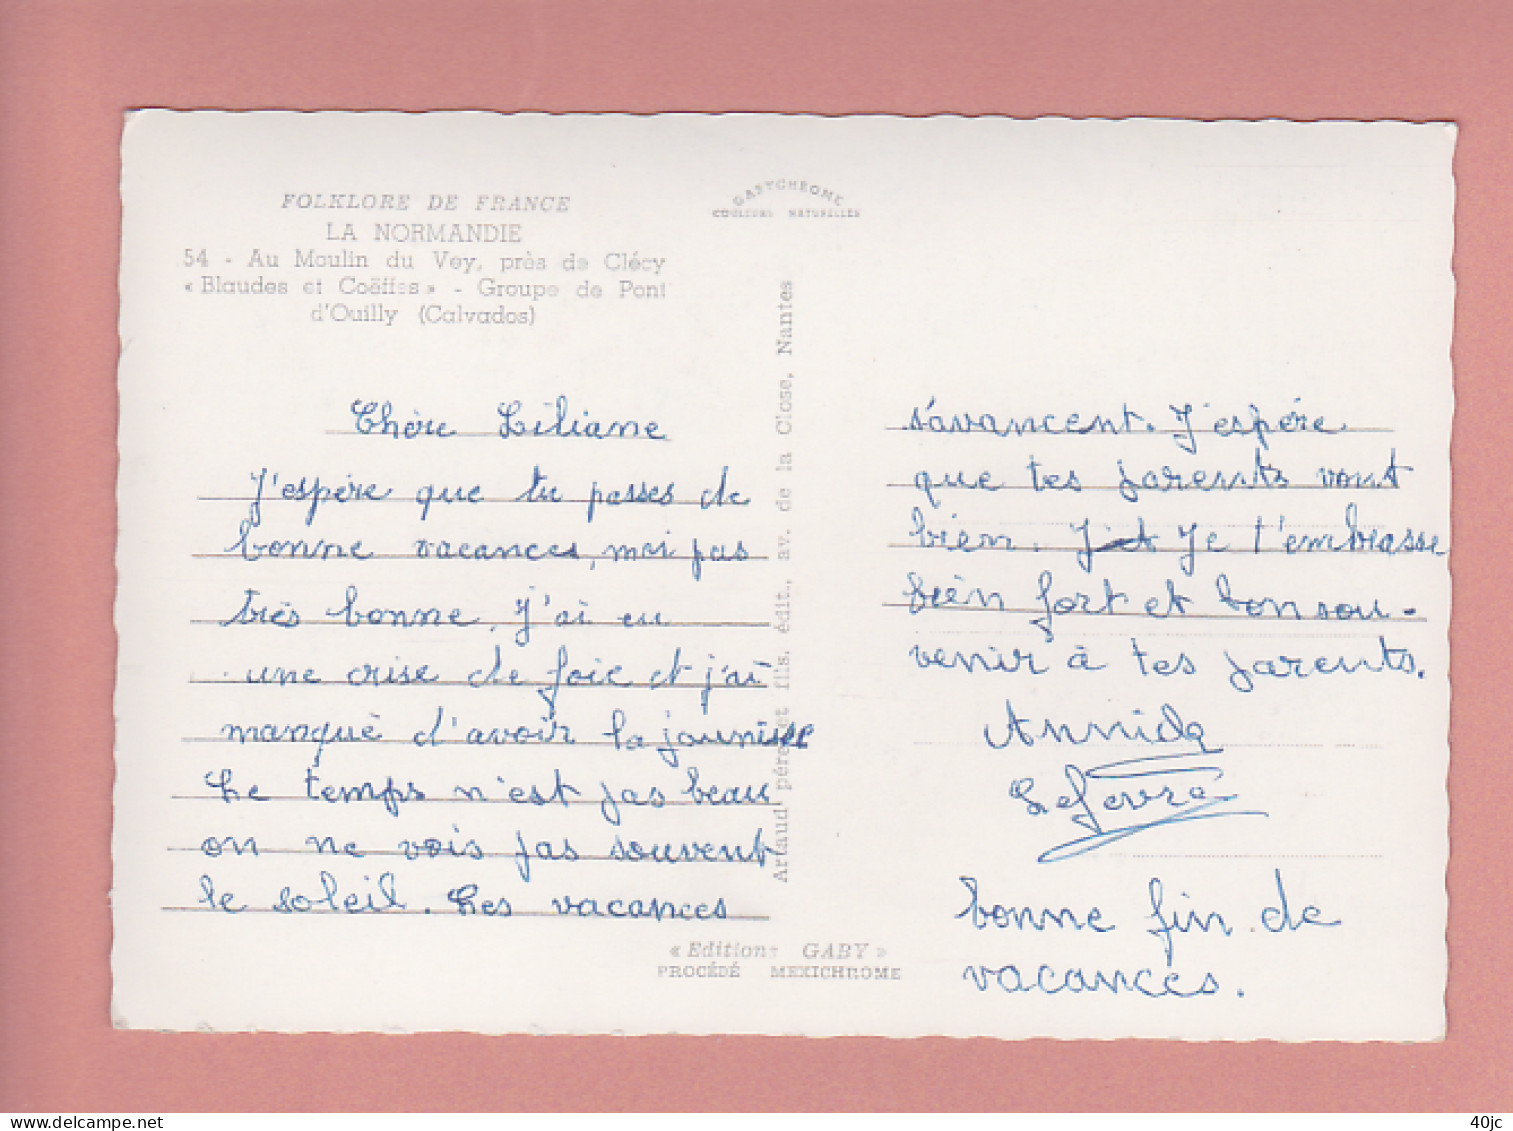 FOLKLORE DE FRANCE
LA NORMANDIE
54 - Au Moulin du Vey, près de Clécy
« Blaudes et Coëffes » - Groupe de Pont
d'Ouilly (Calvados)
GABYCHROME
COULEURS NATURELLES
Artaud père et fils, édit., av. de la Close, Nantes
Chère Liliane
J'espère que tu passes de
bonne vacances, moi pas
très bonne. J'ai eu
une crise de foie et j'ai
manqué d'avoir la jaunisse
Le temps n'est pas beau
on ne vois pas souvent
le soleil. Les vacances
« Editions GABY »
PROCÉDÉ MEXICHROME
s'avancent. J'espére
que tes parents vont
bien. Je t'embrasse
bien fort et bon sou-
venir à tes parents.
Annick
Lefevre
bonne fin de
vacances.
delcampe.net
40jc